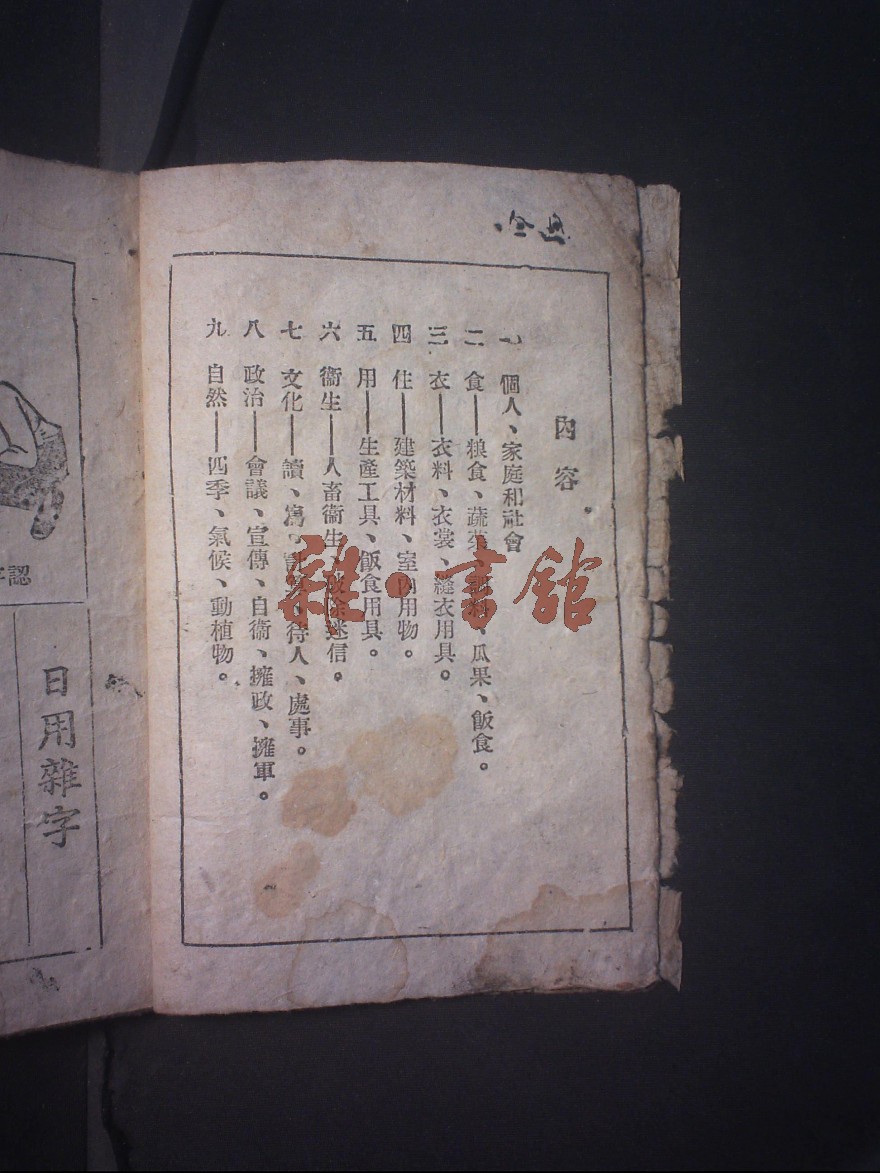 內容
一 個人、家庭和社會
二 食——粮食、蔬菜、調料、瓜果、飯食。
三 衣——衣料、衣裳、縫衣用具。
四 住——建築材料、室內用物。
五 用——生產工具、飯食用具。
六 衞生——人畜衞生、破除迷信。
七 文化——讀、寫、計算、待人、處事。
八 政治——會議、宣傳、自衞、擁政、擁軍。
九 自然——四季、氣候、動植物。
雜·書館
認
日用雜字